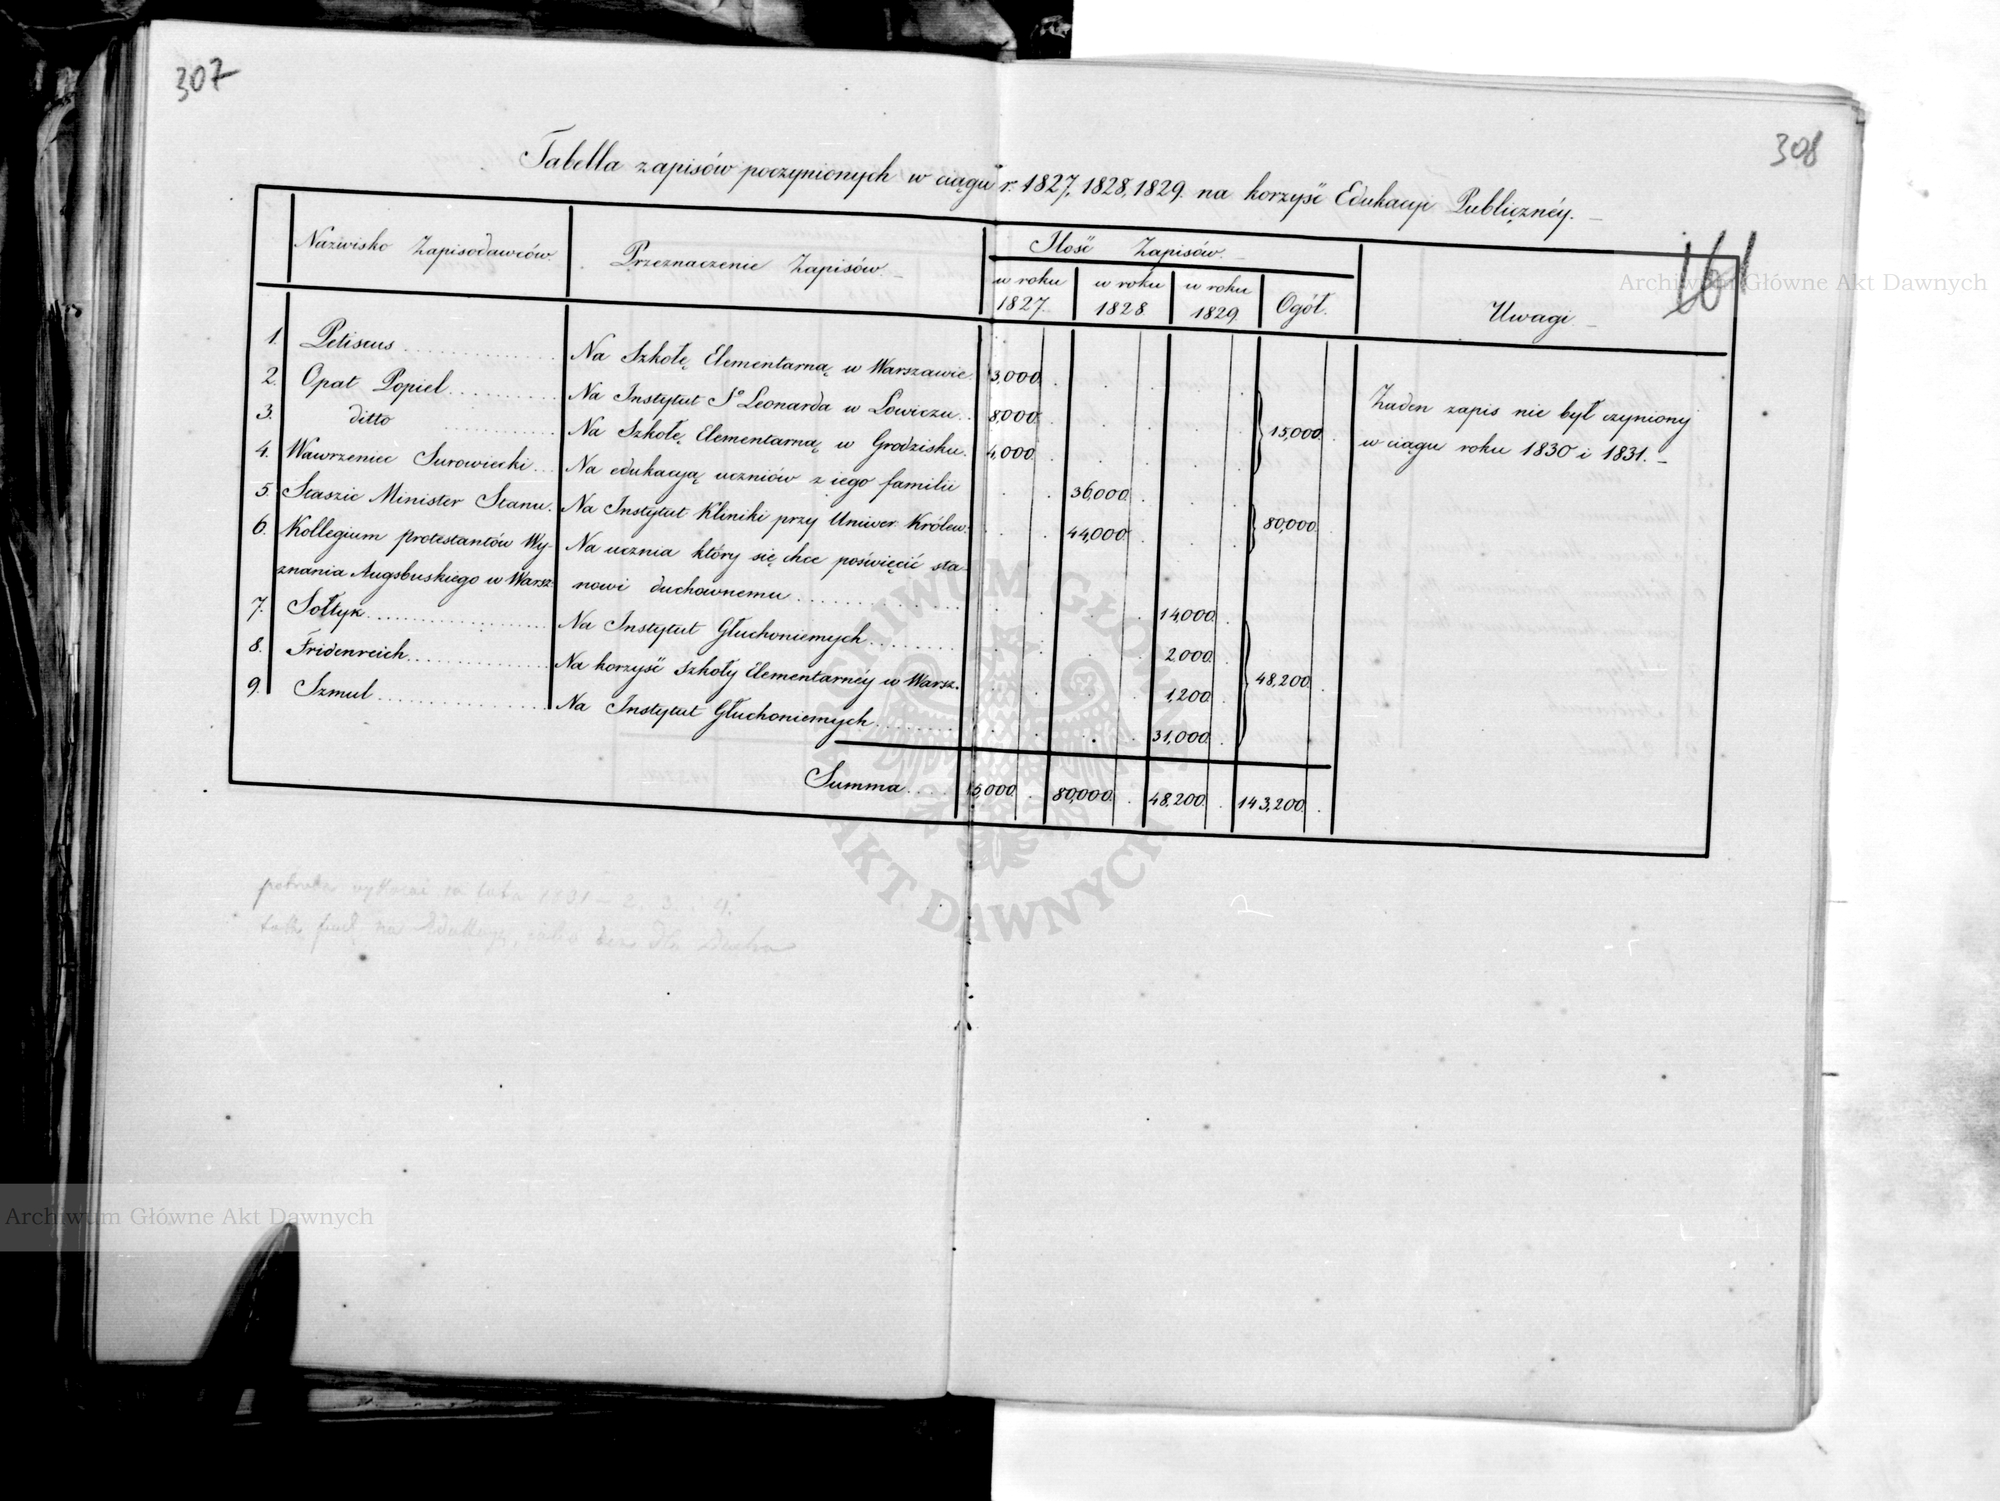 307
308
161
Tabella zapisów poczynionych w ciągu r. 1827, 1828, 1829. na korzyść Edukacyi Publiczney.
Nazwisko Zapisodawców.
Przeznaczenie Zapisów.
Ilość Zapisów.
w roku 1827.
w roku 1828
w roku 1829
Ogół.
Uwagi
1. Petiscus Na Szkołę Elementarną w Warszawie. 3,000.
2. Opat Popiel Na Instytut So Leonarda w Łowiczu. 8,000.
3. ditto Na Szkołę Elementarną w Grodzisku. 4,000 15,000.
4. Wawrzeniec Surowiecki Na edukacyją uczniów z iego familii 36,000.
5. Staszic Minister Stanu. Na Instytut Kliniki przy Uniwer Królew. 44,000. 80,000.
6. Kollegium protestantów Wy- Na ucznia który się chce poświęcić sta-
znania Augsbuskiego w Warsz. nowi duchownemu 14,000.
7. Sołtyk Na Instytut Głuchoniemych 2,000.
8. Fridenreich Na korzyść Szkoły Elementarnéy w Warsz. 1,200. 48,200.
9. Szmul Na Instytut Głuchoniemych 31,000.
Summa 15,000. 80,000. 48,200. 143,200.
Żaden zapis nie był czyniony
w ciągu roku 1830 i 1831.
Archiwum Główne Akt Dawnych
ARCHIWUM GŁÓWNE
AKT DAWNYCH
Archiwum Główne Akt Dawnych